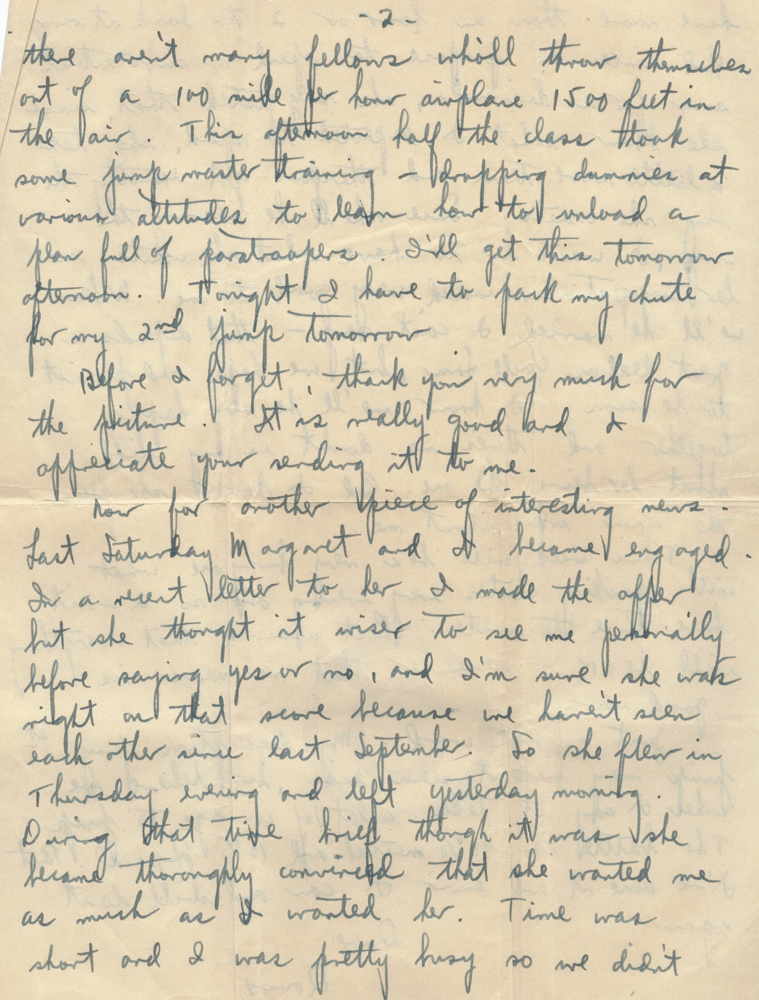 - 2 -
there aren't many fellows who'll throw themselves
out of a 100 mile per hour airplane 1500 feet in
the air. This afternoon half the class took
some jump master training - dropping dummies at
various altitudes to learn how to unload a
plan full of parstroopers. I'll get this tomorrow
afternoon. Tonight I have to pack my chute
for my 2nd jump tomorrow
Before I forget, thank you very much for
the picture. It is really good and I
appreciate your sending it to me.
Now for another piece of interesting news.
Last Saturday Margaret and I became engaged.
In a recent letter to her I made the offer
but she thought it wiser to see me personally
before saying yes or no, and I'm sure she was
right on that score because we haven't seen
each other since last September. So she flew in
Thursday evening and left yesterday morning.
During that time brief though it was she
became thoroughly convinced that she wanted me
as much as I wanted her. Time was
short and I was pretty busy so we didn't